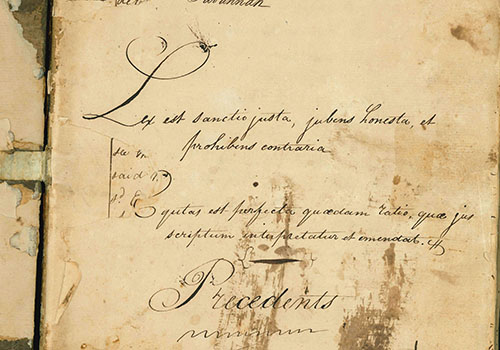 Savannah
Lex est sanctio justa, jubens honesta, et
prohibens contraria
said
Equitas est perfecta quædam ratio, quæ jus
scriptum interpretatur et emendat.
Precedents